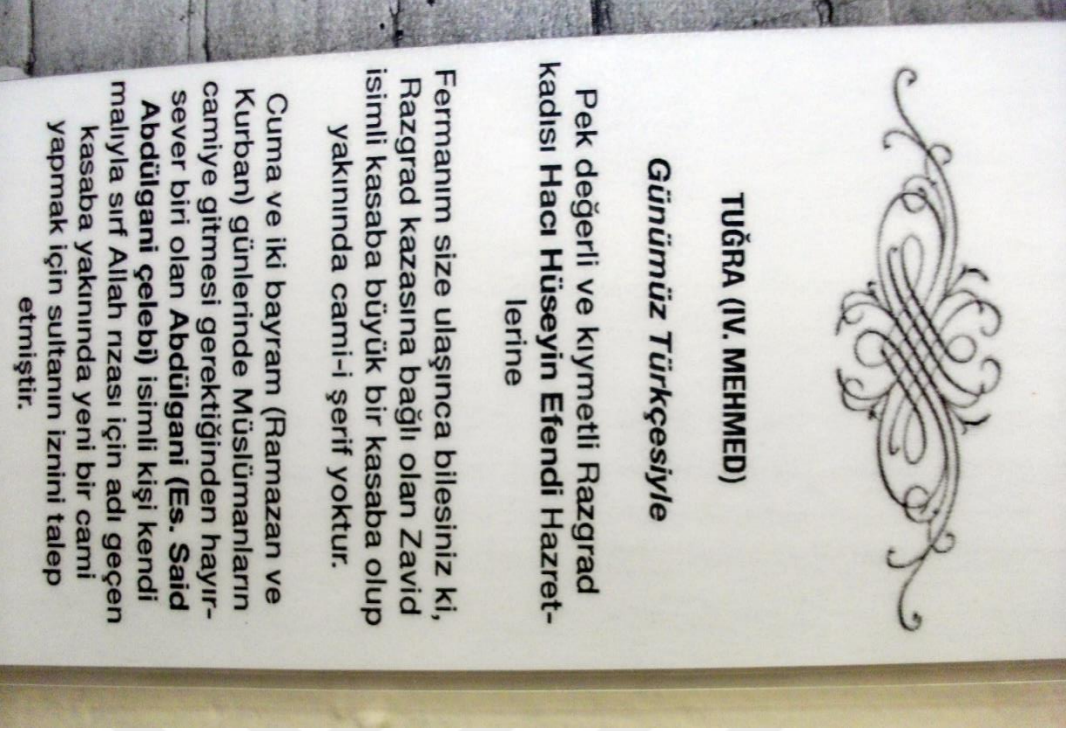 TUĞRA (IV. MEHMED)
Günümüz Türkçesiyle
Pek değerli ve kıymetli Razgrad
kadısı Hacı Hüseyin Efendi Hazret-
lerine
Fermanım size ulaşınca bilesiniz ki,
Razgrad kazasına bağlı olan Zavid
isimli kasaba büyük bir kasaba olup
yakınında cami-i şerif yoktur.
Cuma ve iki bayram (Ramazan ve
Kurban) günlerinde Müslümanların
camiye gitmesi gerektiğinden hayır-
sever biri olan Abdülgani (Es. Said
Abdülgani çelebi) isimli kişi kendi
malıyla sırf Allah rızası için adı geçen
kasaba yakınında yeni bir cami
yapmak için sultanın iznini talep
etmiştir.